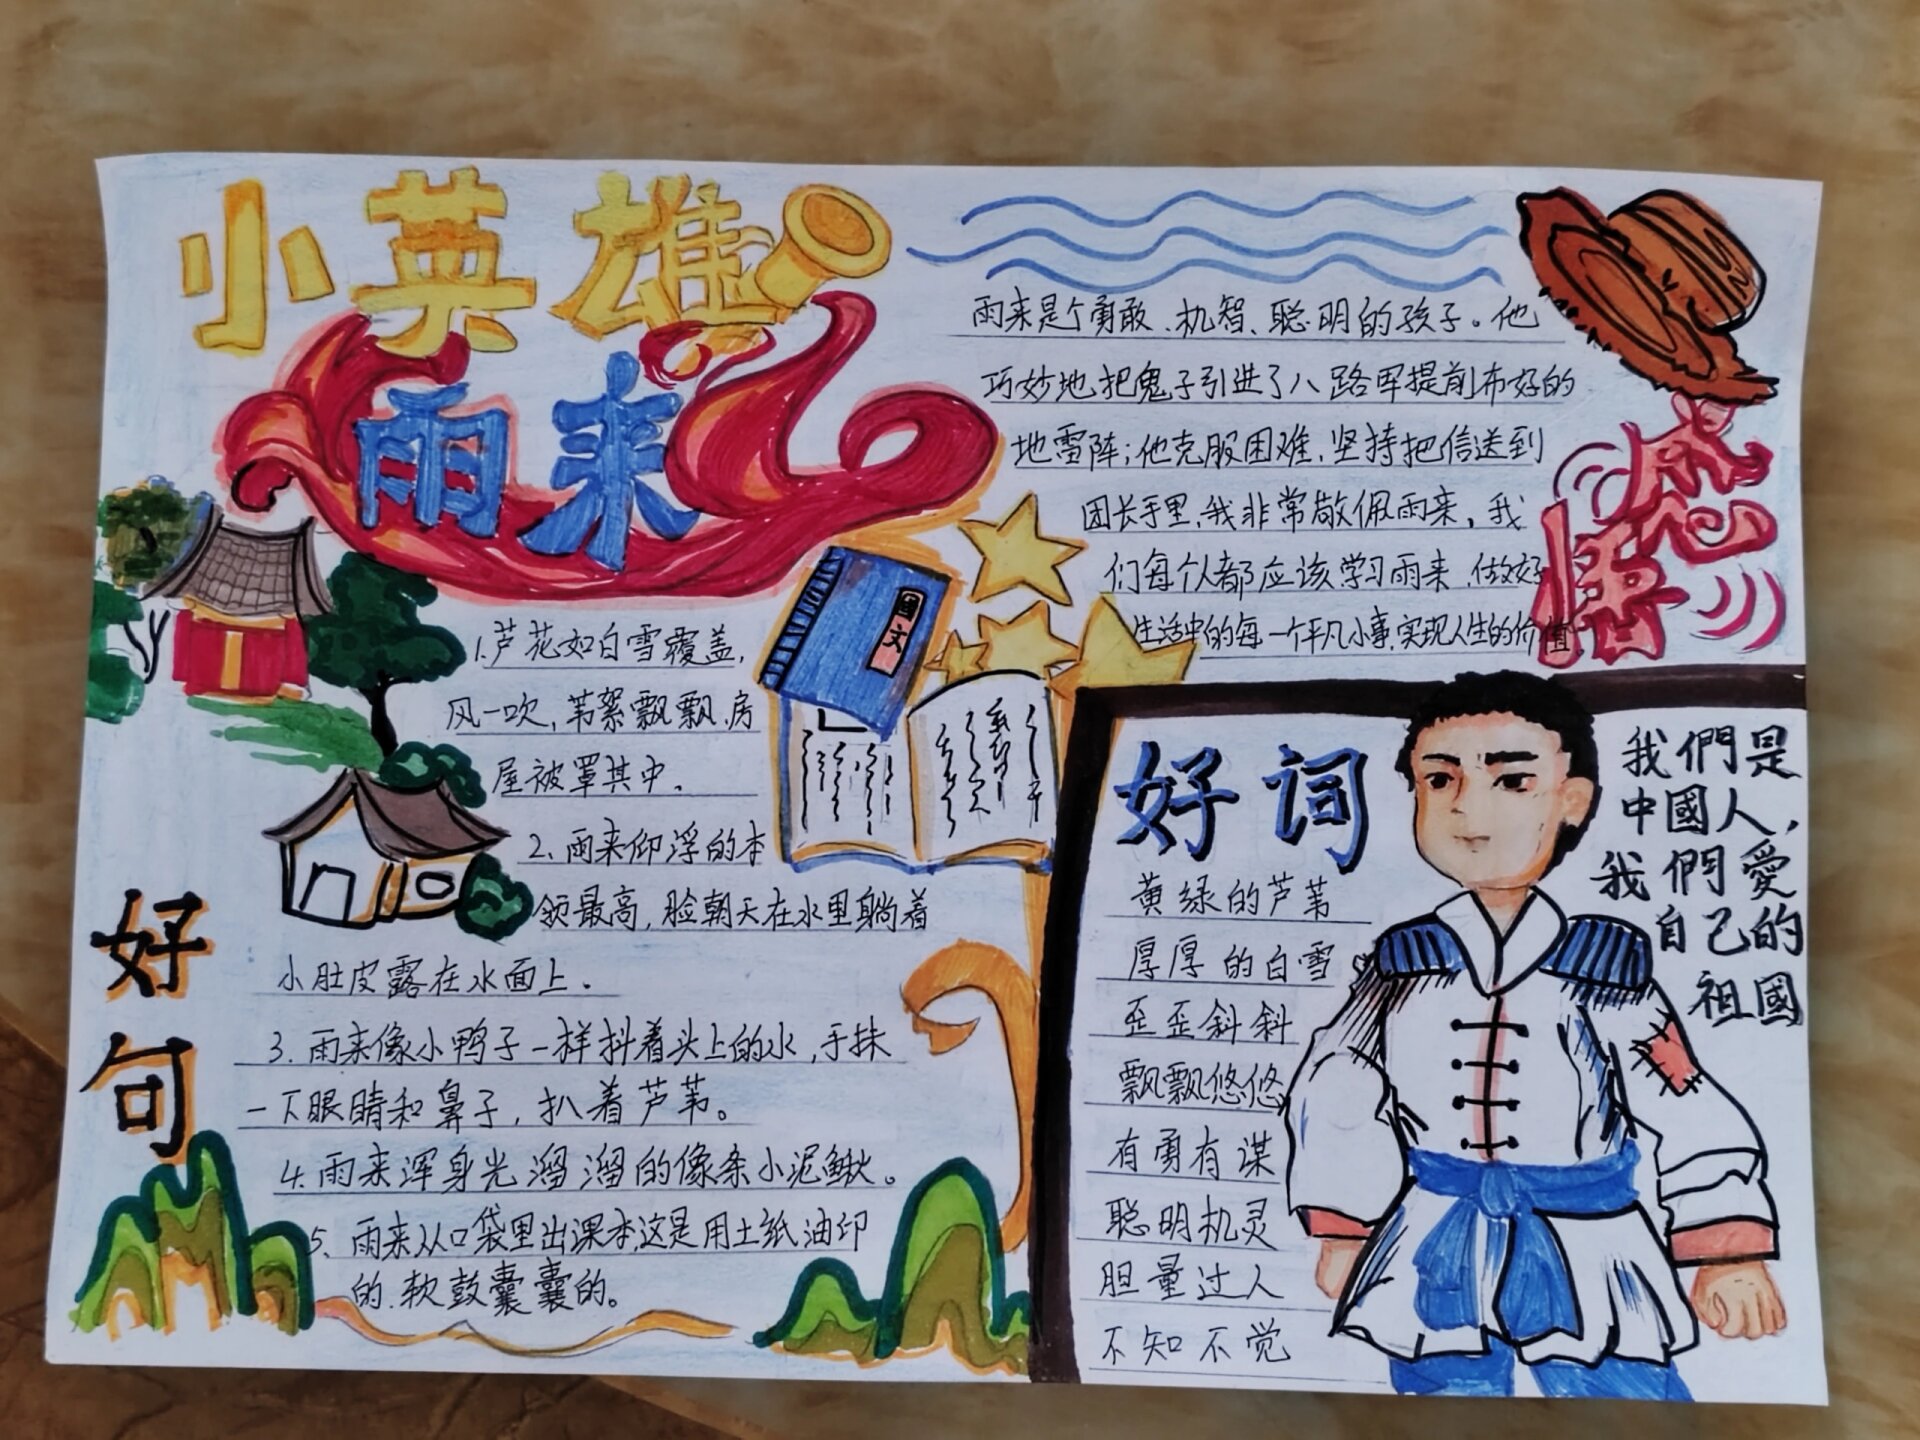 小英雄
雨来
雨来是个勇敢、机智、聪明的孩子。他
巧妙地把鬼子引进了八路军提前布好的
地雷阵；他克服困难，坚持把信送到
团长手里，我非常敬佩雨来，我
们每个人都应该学习雨来，做好
生活中的每一个平凡小事，实现人生的价值。
感悟
國文
1.芦花如白雪覆盖，
风一吹，苇絮飘飘，房
屋被罩其中。
2.雨来仰浮的本
领最高，脸朝天在水里躺着
小肚皮露在水面上。
3.雨来像小鸭子一样抖着头上的水，手抹
一下眼睛和鼻子，扒着芦苇。
4.雨来浑身光溜溜的像条小泥鳅。
5、雨来从口袋里出课本，这是用土纸油印
的，软鼓囊囊的。
好句
好词
黄绿的芦苇
厚厚的白雪
歪歪斜斜
飘飘悠悠
有勇有谋
聪明机灵
胆量过人
不知不觉
我們是
中國人，
我們愛
自己的
祖國